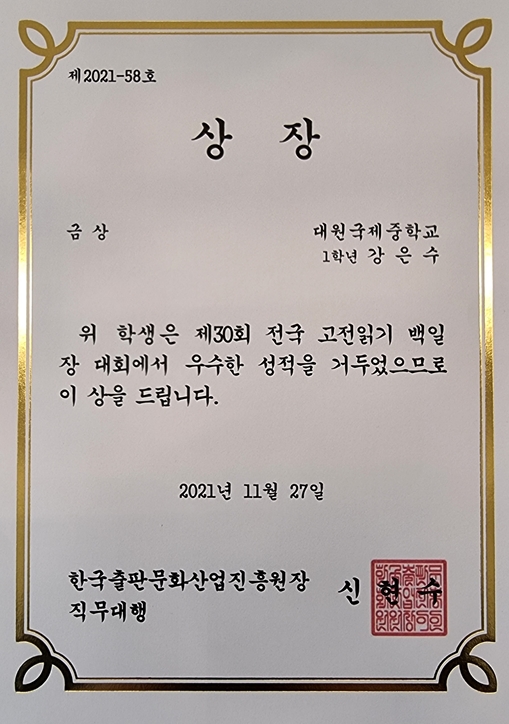 제2021-58호
상 장
금 상
대원국제중학교
1학년 강 은 수
위 학생은 제30회 전국 고전읽기 백일
장 대회에서 우수한 성적을 거두었으므로
이 상을 드립니다.
2021년 11월 27일
한국출판문화산업진흥원장
직무대행
신 현 수